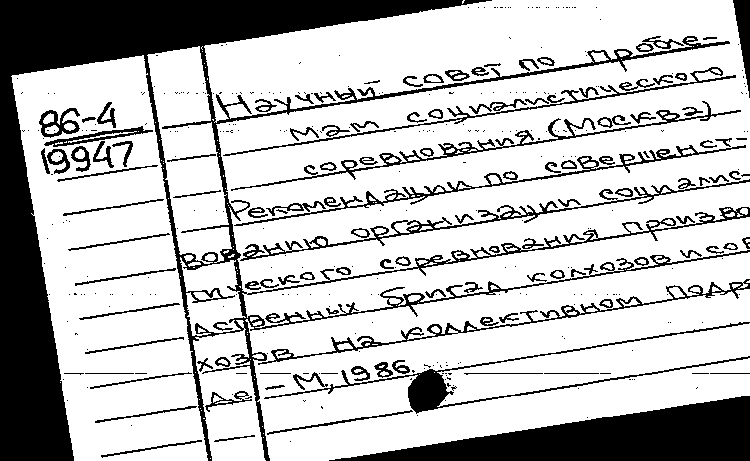 86-4
19947
Научный совет по пробле-
мам социалистического
соревнования (Москва)
Рекомендации по совершенст-
вованию организации социалис-
тического соревнования произво
дственных бригад колхозов и сов
хозов на коллективном подря
де. - М, 1986.